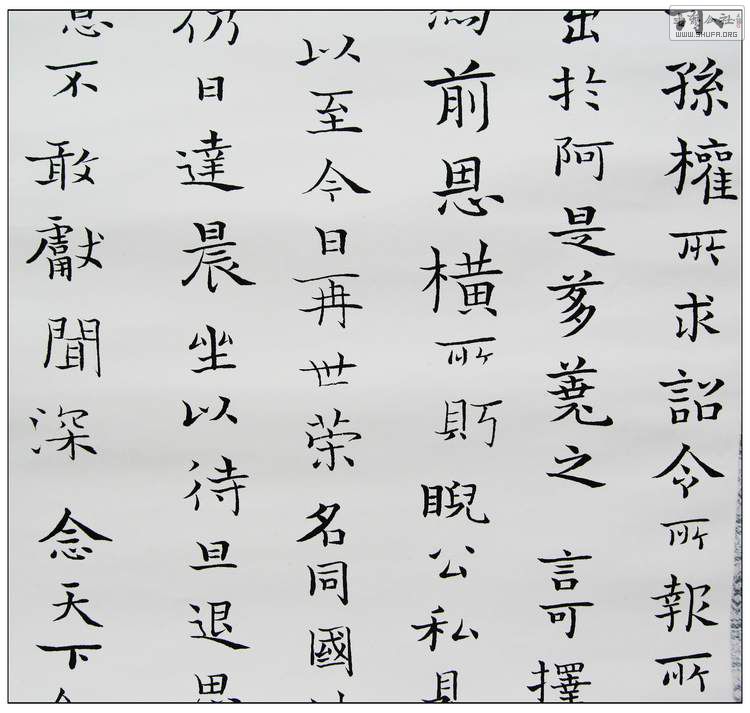 孫權所求詔令所報所
出於阿是芻蕘之言可擇
為前恩橫所眄睨公私見
以至今日再世荣名同國
仍日達晨坐以待旦退思
意不敢獻聞深念天下
WWW.SHUFA.ORG